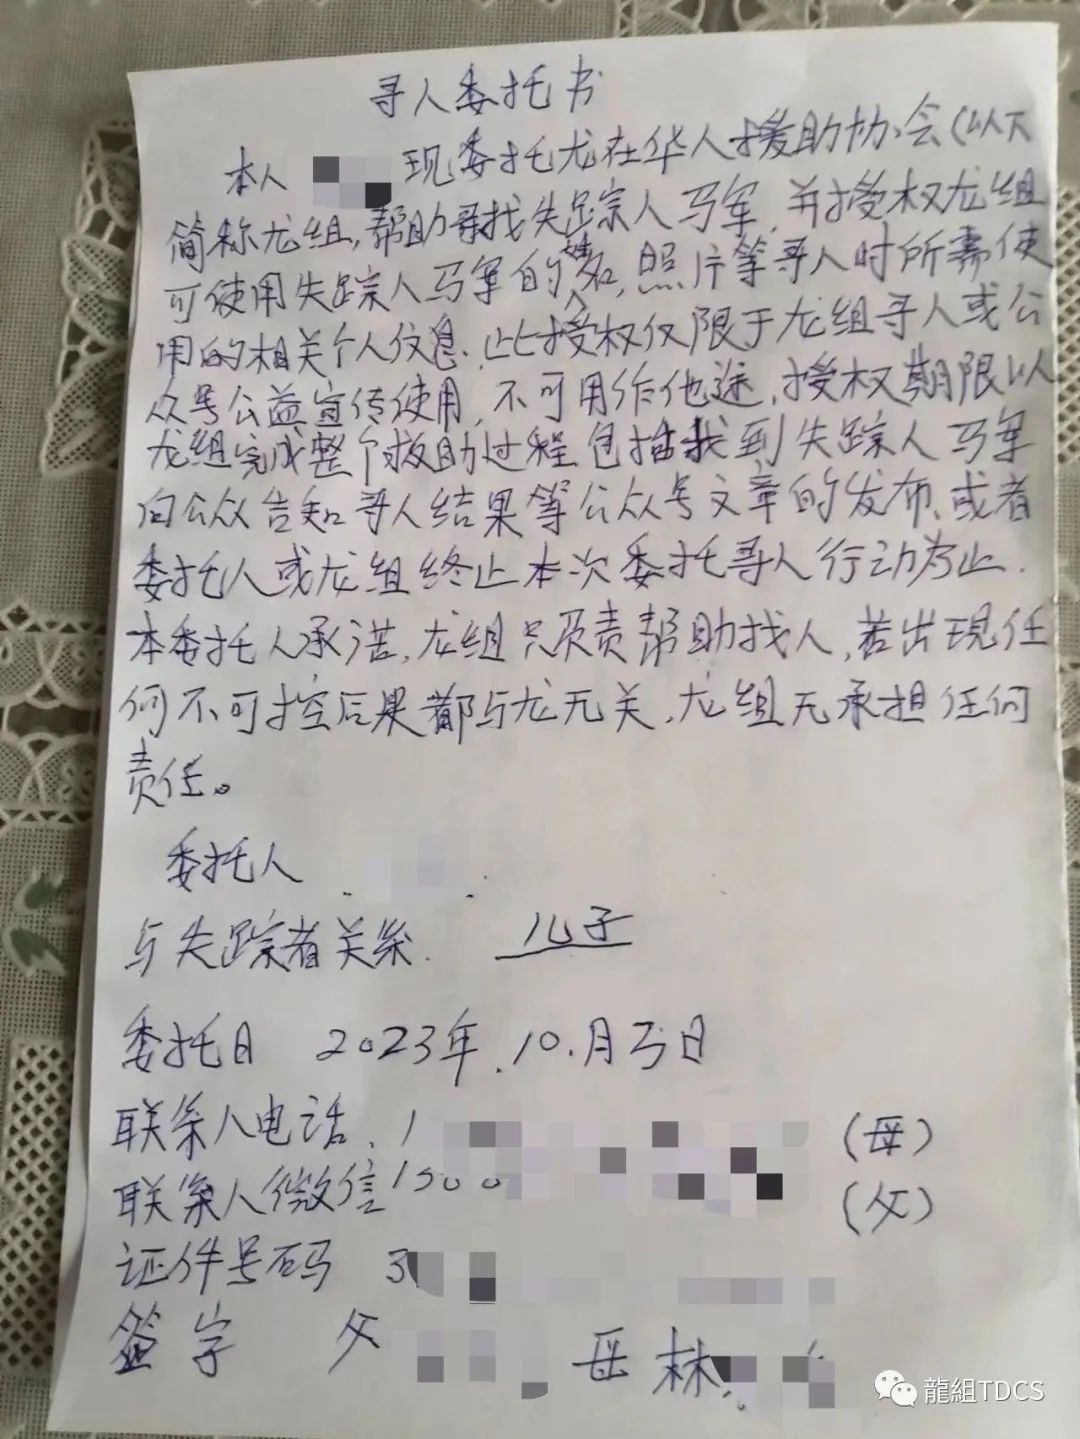 寻人委托书
本人 现委托龙在华人援助协会(以下
简称龙组,帮助寻找失踪人马军,并授权龙组
可使用失踪人马军的姓名,照片等寻人时所需使
用的相关个人信息.此授权仅限于龙组寻人或公
众号公益宣传使用,不可用作他途,授权期限以
龙组完成整个援助过程包括找到失踪人马军
向公众告知寻人结果等公众号文章的发布、或者
委托人或龙组终止本次委托寻人行动为止.
本委托人承诺,龙组只负责帮助找人,若出现任
何不可控后果都与龙无关,龙组无承担任何
责任。
委托人
与失踪者关系. 儿子
委托日 2023年.10.月 日
联系人电话、1 (母)
联系人微信1500 (父)
证件号码 3
签字 父 母 林
龍組TDCS